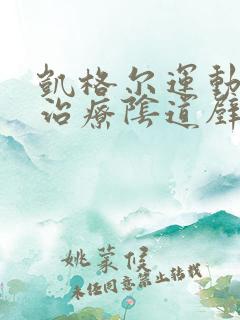 凱格尔運動
治療陰道壁
姚蒙候
未任同意禁止转载